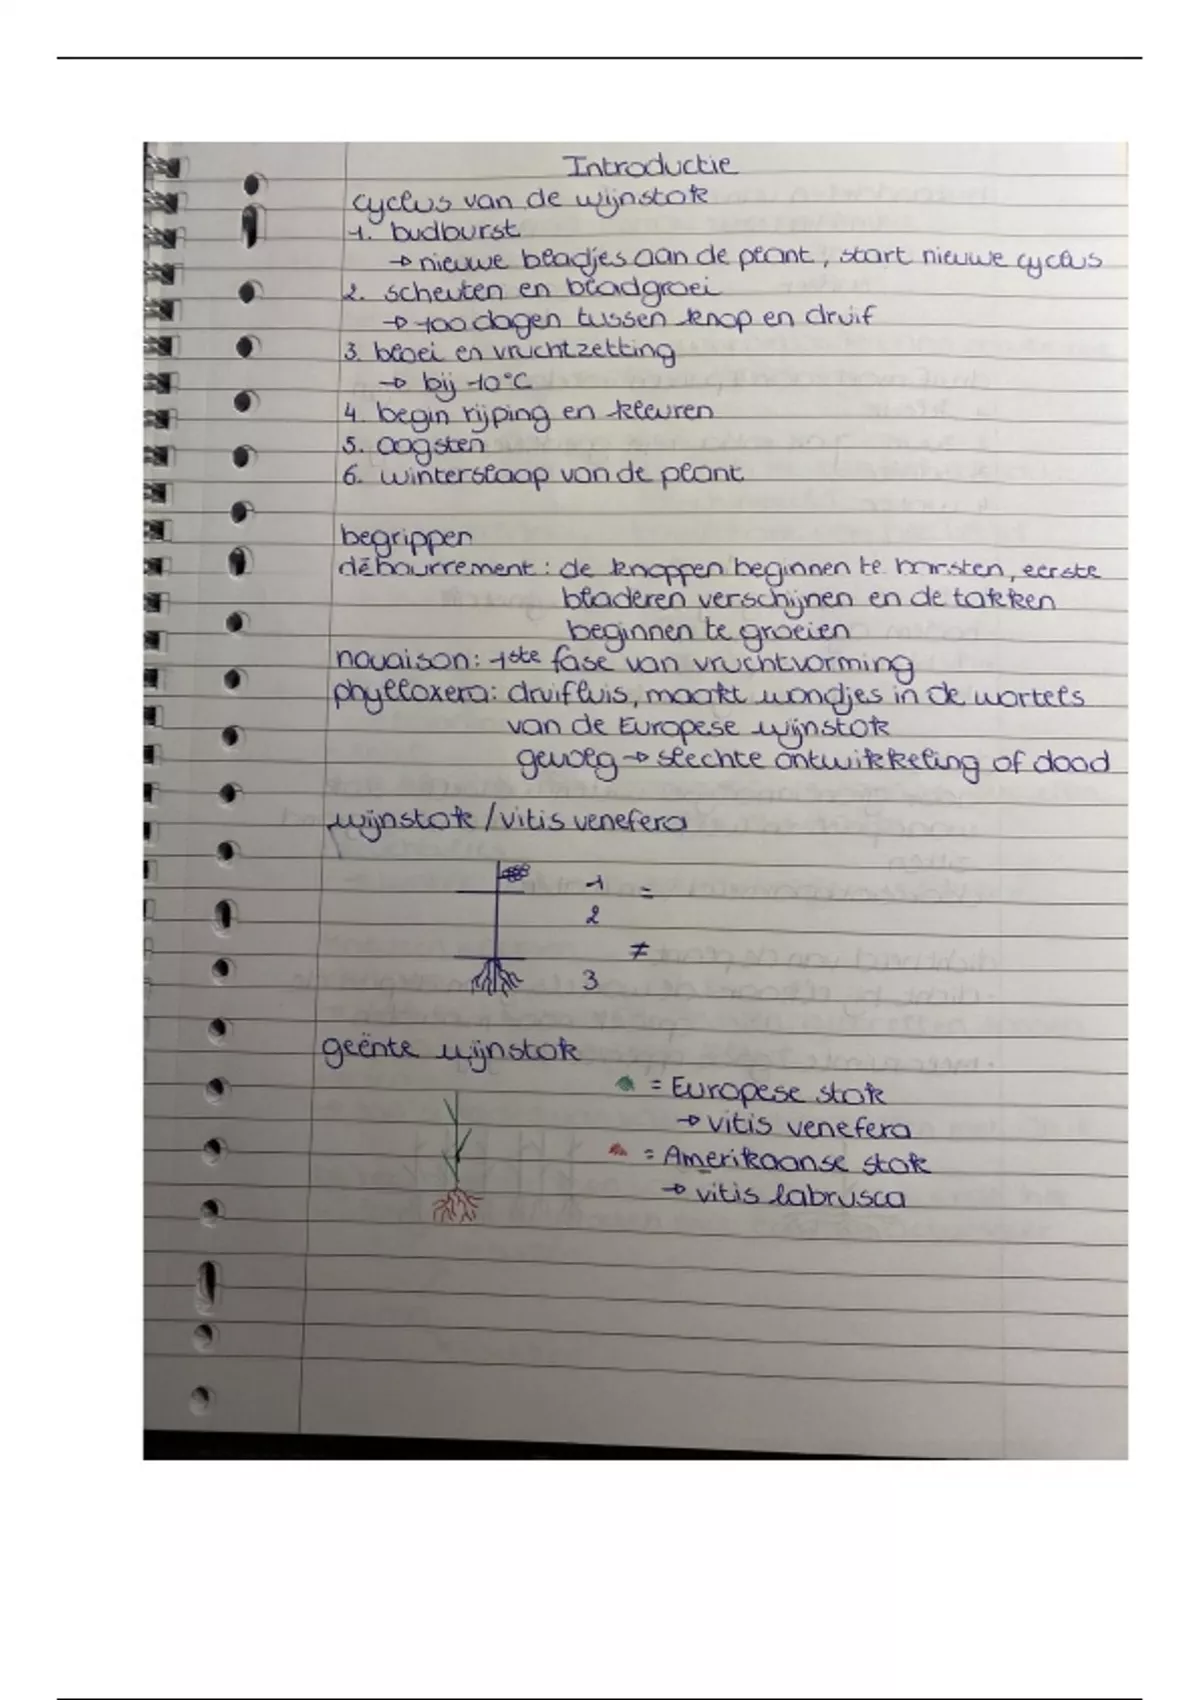 Introductie
cyclus van de wijnstok
1. budburst
→ nieuwe blaadjes aan de plant, start nieuwe cyclus
2. scheuten en bladgroei
→ 100 dagen tussen knop en druif
3. bloei en vruchtzetting
→ bij 10°C
4. begin rijping en kleuren
5. oogsten
6. winterslaap van de plant
begrippen
débourrement: de knoppen beginnen te barsten, eerste
bladeren verschijnen en de takken
beginnen te groeien
nouaison: 1ste fase van vruchtvorming
phylloxera: druifluis, maakt wondjes in de wortels
van de Europese wijnstok
gevolg → slechte ontwikkeling of dood
wijnstok / vitis venefera
1 =
2
≠
3
geënte wijnstok
= Europese stok
→ vitis venefera
= Amerikaanse stok
→ vitis labrusca